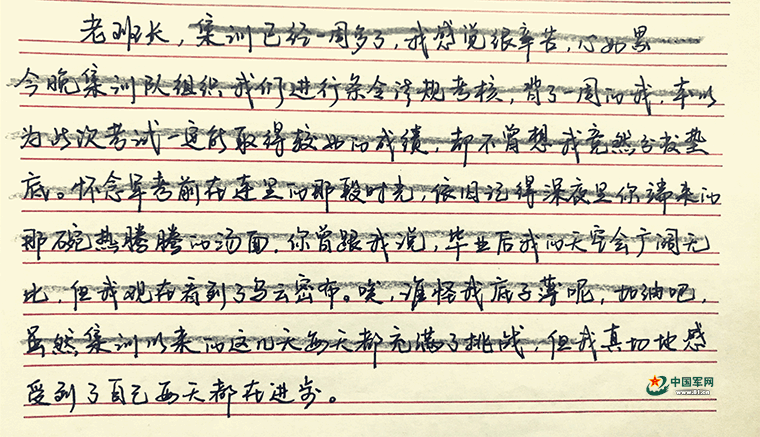 老班长，集训已经一周多了，我感觉很辛苦，心好累
今晚集训队组织我们进行条令法规考核，背了一周的我，本以
为此次考试一定能取得较好的成绩，都不曾想我竟然会发垫
底。怀念军考前在连里的那段时光，依旧记得深夜里你端来的
那碗热腾腾的汤面，你曾跟我说，毕业后我的天空会广阔无
比，但我现在看到了乌云密布。唉，谁怪我底子薄呢，加油吧，
虽然集训以来的这几天每天都充满了挑战，但我真切地感
受到了自己每天都在进步。
中国军网
www.81.cn